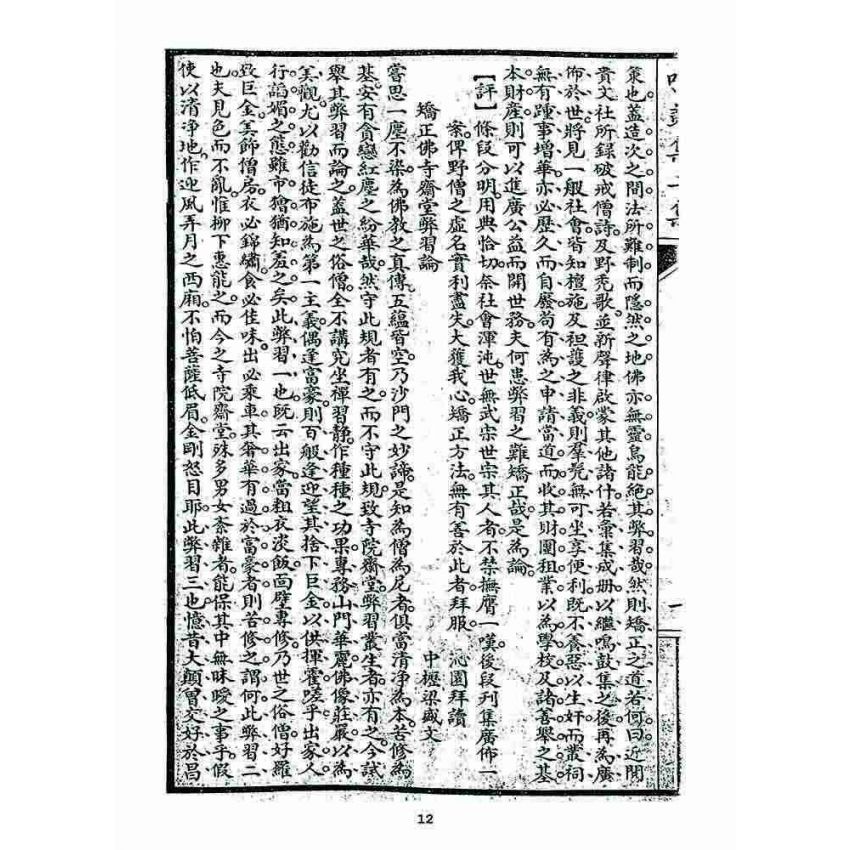 策也。蓋造次之間。法所難制。而隱然之地。佛亦無靈。烏能絕其弊習哉。然則矯正之道若何。曰。近聞
貴文社所錄破戒僧詩。及野禿歌。並新聲律啟蒙。其他諸什。若彙集成冊。以繼鳴鼓集之後。再為廣
佈於世。將見一般社會。皆知檀施及袒護之非義。則羣髡無可坐享便利。既不養惡以生奸。而叢祠
無有踵事增華。亦必歷久而自廢。苟有為之申請當道。而收其財團租業。以為學校及諸善舉之基
本財產。則可以進廣公益。而開世務。夫何患弊習之難矯正哉。是為論。
【評】條段分明。用典恰切。柰社會渾沌。世無武宗世宗其人者。不禁撫膺一嘆。後段刊集廣佈一
案。俾野僧之虛名實利盡失。大獲我心。矯正方法。無有善於此者。拜服。 沁園拜讀
矯正佛寺齋堂弊習論 中壢梁盛文
嘗思一塵不染。為佛教之真傳。五蘊皆空。乃沙門之妙諦。是知為僧為尼者。俱當清淨為本。苦修為
基。安有貪戀紅塵之紛華哉。然守此規者有之。而不守此規。致寺院齋堂弊習叢生者。亦有之。今試
舉其弊習而論之。蓋世之俗僧。全不講究坐禪習靜。作種種之功果。專務山門華麗。佛像莊嚴。以為
美觀。尤以勸信徒布施為第一主義。偶逢富豪。則百般逢迎。望其捨下巨金。以供揮霍。嗟乎。出家人
行諂媚之態。雖市獪猶知羞之矣。此弊習一也。既云出家。當粗衣淡飯。面壁專修。乃世之俗僧。好羅
致巨金。美飾僧房。衣必錦繡。食必佳味。出必乘車。其奢華有過於富豪者。則苦修之謂何。此弊習二
也。夫見色而不亂。惟柳下惠能之。而今之寺院齋堂。殊多男女柰雜者。能保其中無昧曖之事乎。假
使以清淨地。作迎風弄月之西廂。不怕菩薩低眉。金剛怒目耶。此弊習三也。憶昔大顛曾交好於昌
12